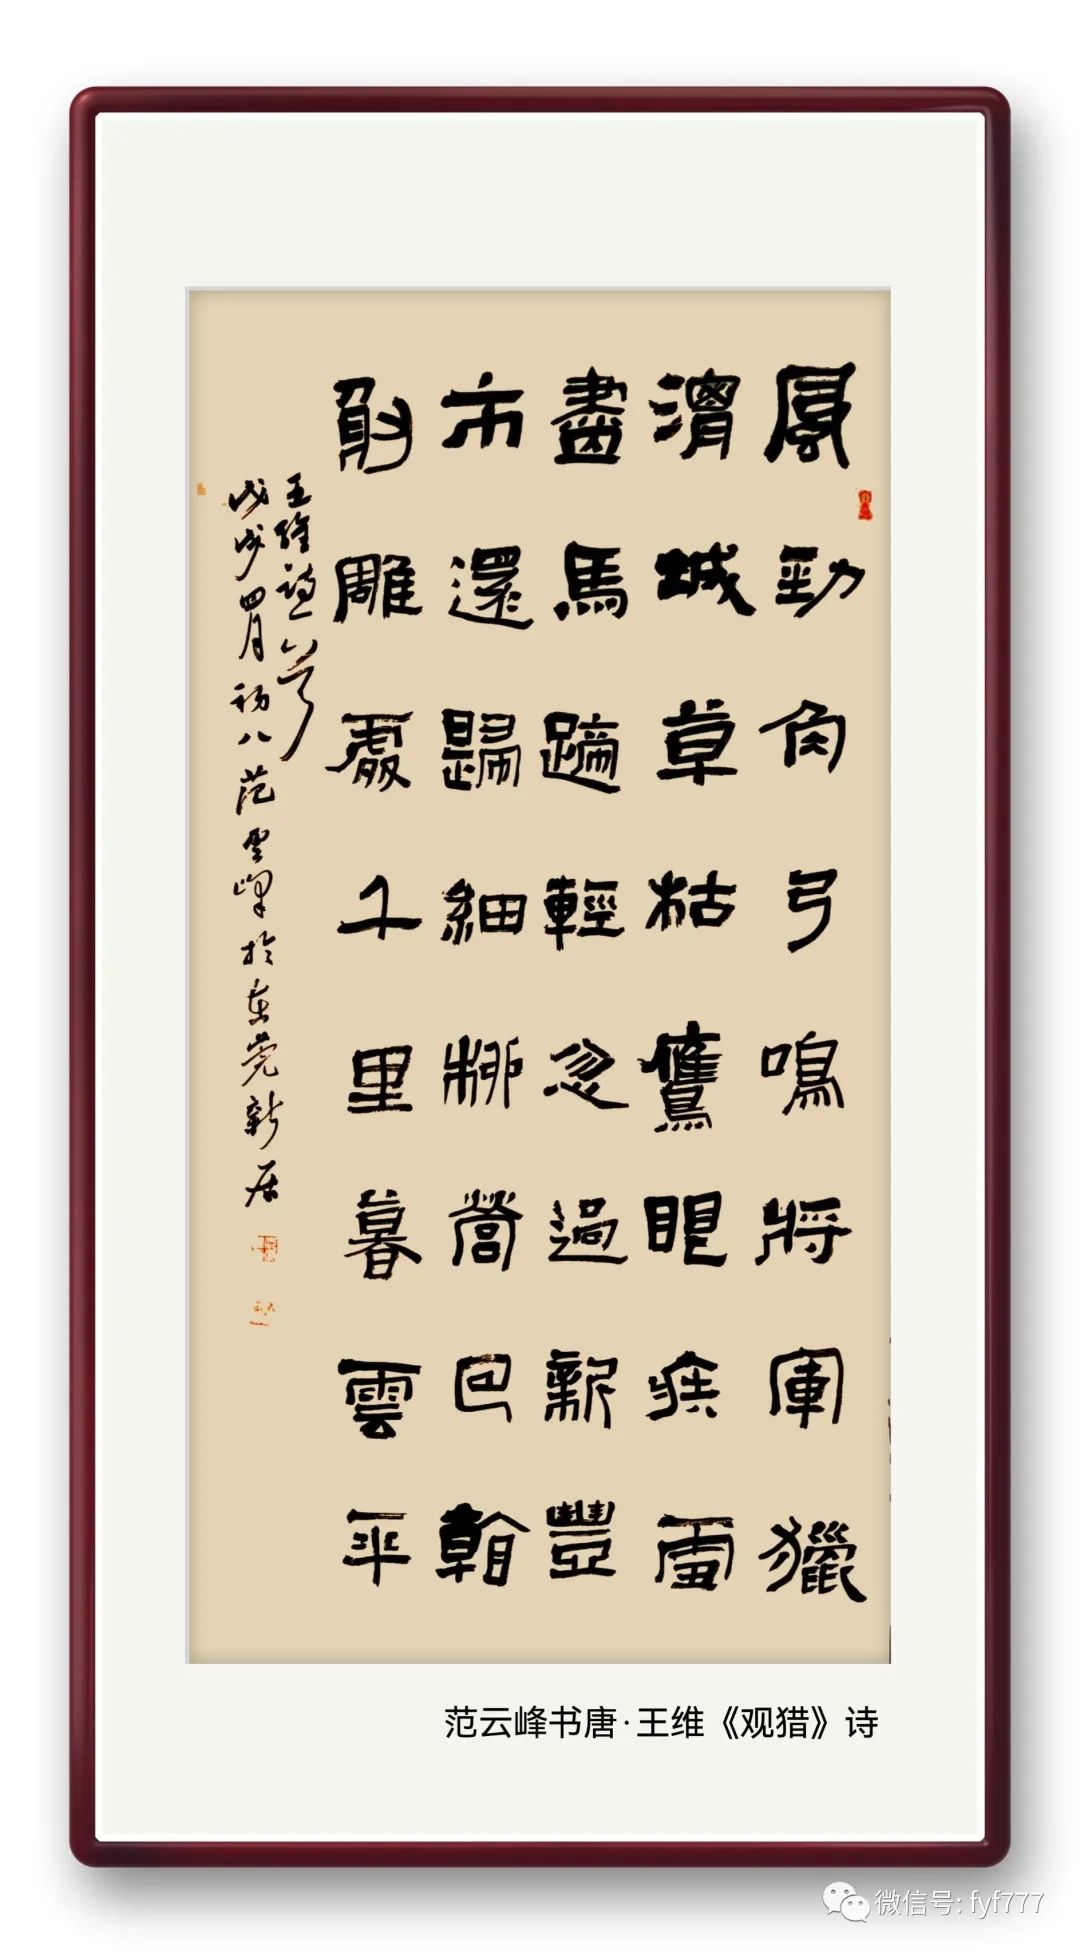 風勁角弓鳴將軍獵
渭城草枯鷹眼疾雪
盡馬蹄輕忽過新豐
市還歸細柳營回看
射雕處千里暮雲平
王維詩一首
戊戌四月初八范雲峰於東莞新居
范云峰书唐·王维《观猎》诗
微信号: fyf777